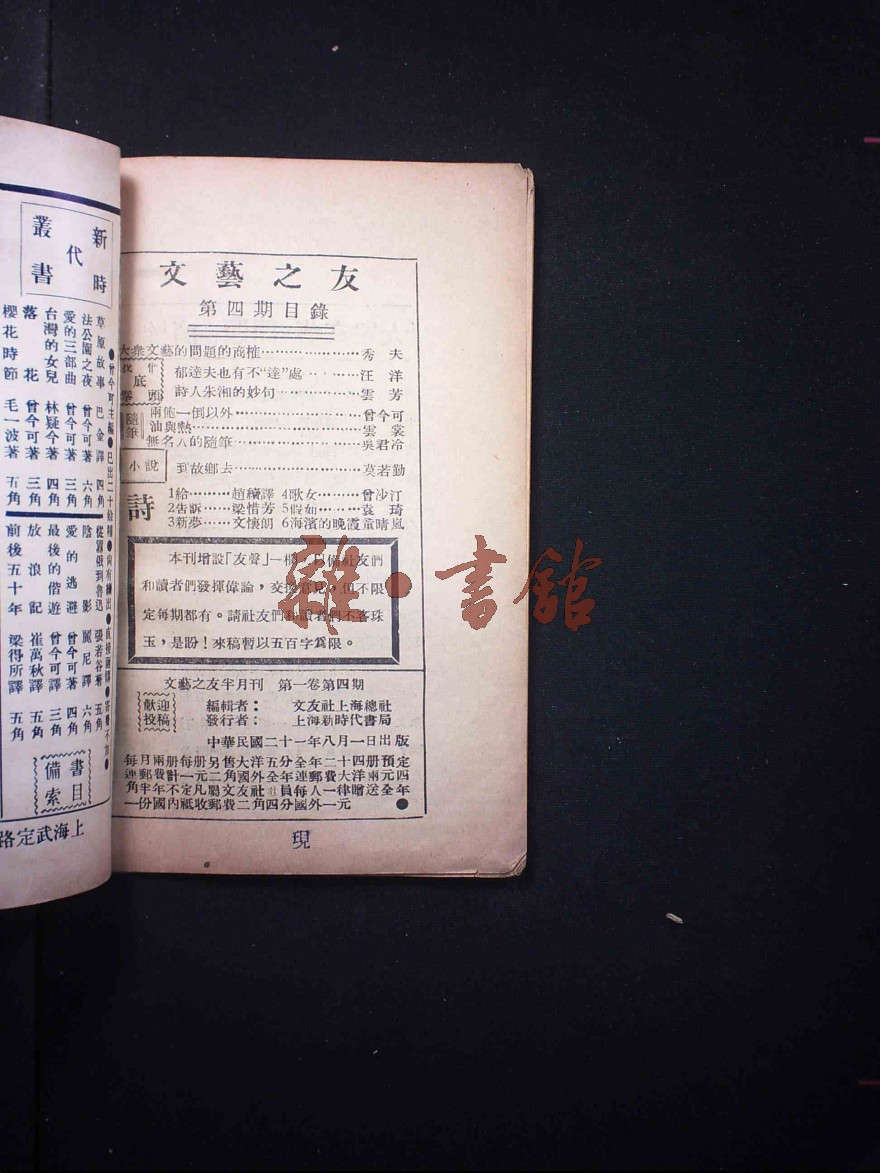 文藝之友
第四期目錄
大衆文藝的問題的商榷 秀夫
我們底拳頭
郁達夫也有不“達”處 汪洋
詩人朱湘的妙句 雲芳
隨筆
兩個一倒以外 曾今可
油與熱 雲裳
無名人的隨筆 吳君冷
小說
到故鄉去 莫若勤
詩
1給 趙績譯 4歌女 曾沙汀
2告訴 梁惜芳 5假如 袁琦
3新夢 文懷朗 6海濱的晚霞 童晴嵐
本刊增設「友聲」一欄，以備社友們
和讀者們發揮偉論，交換意見，但不限
定每期都有。請社友們和讀者們不吝珠
玉，是盼！來稿暫以五百字爲限。
文藝之友半月刊 第一卷第四期
歡迎投稿
編輯者： 文友社上海總社
發行者： 上海新時代書局
中華民國二十一年八月一日出版
每月兩册每册另售大洋五分全年二十四册預定
連郵費計一元二角國外全年連郵費大洋兩元四
角半年不定凡屬文友社社員每人一律贈送全年
一份國內祇收郵費二角四分國外一元
現
新時代叢書
●曾今可主編●已出二十餘種●尚有續出●直接函購●寄費不加●
草原故事 巴金譯 四角
法公園之夜 曾今可著 六角
愛的三部曲 曾今可著 三角
台灣的女兒 林疑今著 四角
落花 曾今可著 三角
櫻花時節 毛一波著 五角
從囂俄到魯迅 張若谷著 五角
陰影 麗尼譯 六角
愛的逃避 曾今可著 四角
最後的偕遊 曾今可譯 三角
放浪記 崔萬秋譯 五角
前後五十年 梁得所譯 五角
書目備索
上海武定路
雜·書館